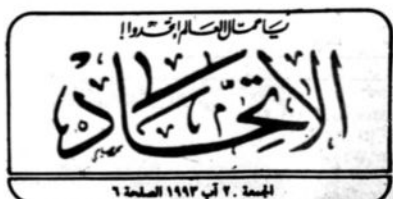 يا عمال العالم اتحدوا!
الاتحاد
الجمعة ٢٠ آب ١٩٩٣ الصفحة ٦